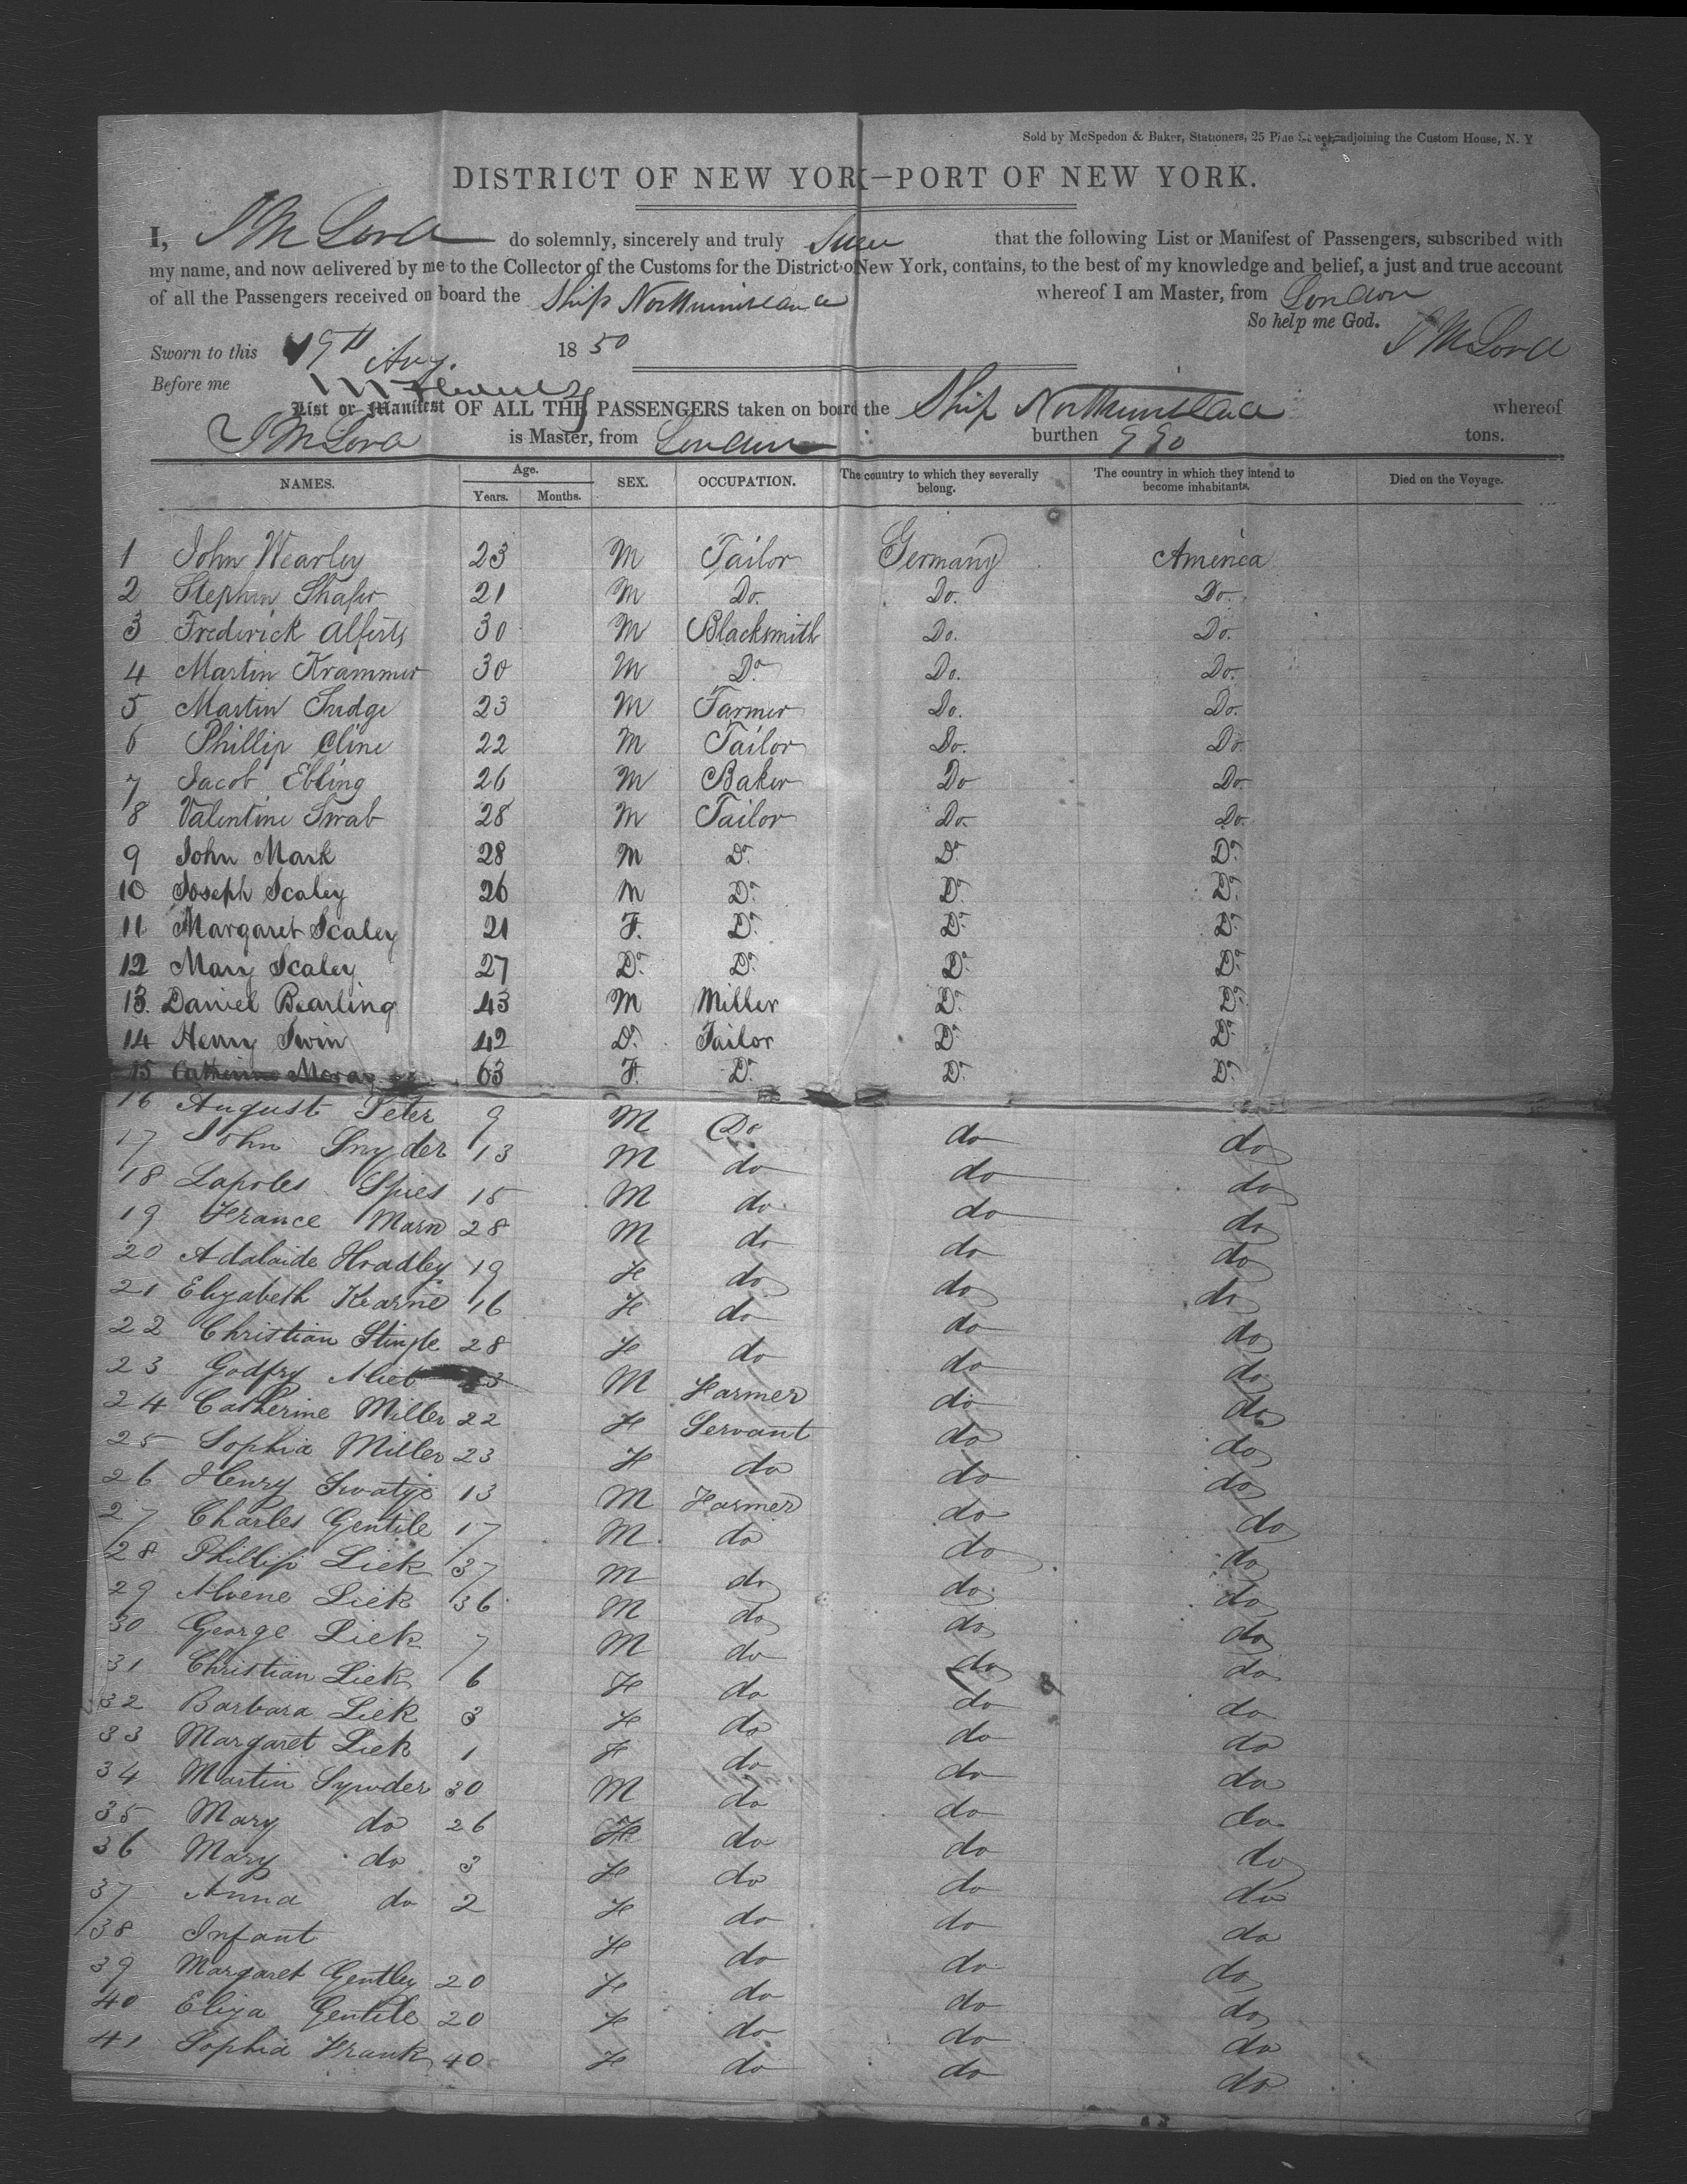 Sold by McSpedon & Baker, Stationers, 25 Pine Street, adjoining the Custom House, N. Y
DISTRICT OF NEW YORK—PORT OF NEW YORK.
I, J M Lord do solemnly, sincerely and truly Swear that the following List or Manifest of Passengers, subscribed with
my name, and now delivered by me to the Collector of the Customs for the District of New York, contains, to the best of my knowledge and belief, a just and true account
of all the Passengers received on board the Ship Northumberland whereof I am Master, from London
So help me God. J M Lord
Sworn to this 19th Aug. 1850
Before me
List or Manifest OF ALL THE PASSENGERS taken on board the Ship Northumberland whereof
J M Lord is Master, from London burthen 990 tons.
NAMES. Age. Years. Months. SEX. OCCUPATION. The country to which they severally belong. The country in which they intend to become inhabitants. Died on the Voyage.
1 John Wearley 23 M Tailor Germany America
2 Stephen Shafer 21 M Do. Do. Do.
3 Frederick Alferts 30 M Blacksmith Do. Do.
4 Martin Krammer 30 M Do Do. Do.
5 Martin Judge 23 M Farmer Do. Do.
6 Phillip Cline 22 M Tailor Do. Do
7 Jacob Ebling 26 M Baker Do Do
8 Valentine Swab 28 M Tailor Do. Do.
9 John Mark 28 M Do. Do. Do.
10 Joseph Scaley 26 M Do. Do. Do.
11 Margaret Scaley 21 F. Do. Do. Do.
12 Mary Scaley 27 Do. Do. Do. Do.
13. Daniel Bearling 43 M Miller Do. Do.
14 Henry Swin 42 Do. Tailor Do. Do.
15 Catherine Moray 63 F. Do. Do. Do.
16 August Peter 9 M Do do do
17 John Snyder 13 M do do do
18 Lapoles Spies 15 M do do do
19 France Marn 28 M do do do
20 Adalaide Hradley 19 F do do do
21 Elizabeth Kearne 16 F do do do
22 Christian Stingle 28 F do do do
23 Godfry 23 M Farmer do do
24 Catherine Miller 22 F Servant do do
25 Sophia Miller 23 F do do do
26 Henry Swatze 13 M Farmer do do
27 Charles Gentile 17 M do do do
28 Phillip Liek 37 M do do do
29 Alvene Liek 36 M do do do
30 George Liek 7 M do do do
31 Christian Liek 6 F do do do
32 Barbara Liek 3 F do do do
33 Margaret Liek 1 F do do do
34 Martin Synder 30 M do do do
35 Mary do 26 F do do do
36 Mary do 3 F do do do
37 Anna do 2 F do do do
38 Infant F do do do
39 Margaret Gentley 20 F do do do
40 Eliza Gentile 20 F do do do
41 Sophia Frank 40 F do do do